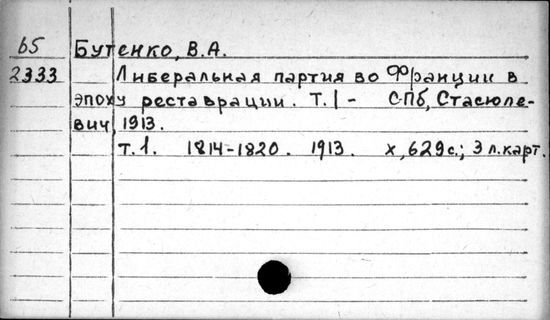 65 Бутенко, В.А.
2333 Либеральная партия во Франции в
эпоху реставрации. Т.1- СПб, Стасюле-
вич, 1913.
т.1. 1814-1820. 1913. x, 629с.; 3 л.карт.